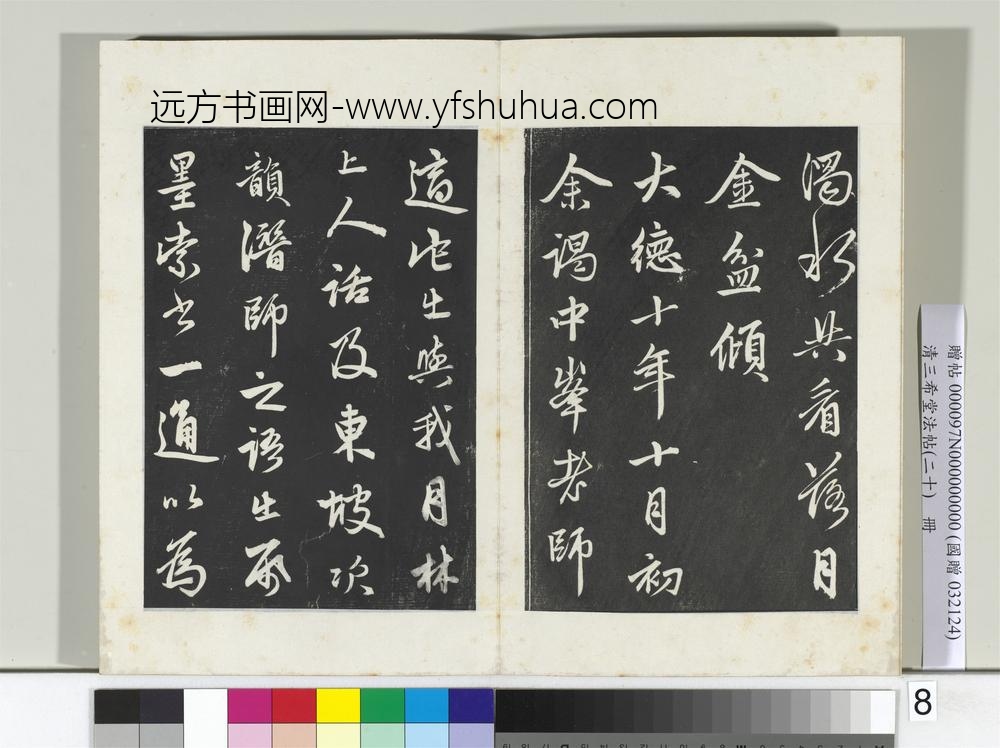 濁水共看落月
金盆傾
大德十年十月初
余謁中峯老師
適它出與我月林
上人話及東坡次
韻潛師之語出帋
墨索書一通以為
远方书画网-www.yfshuhua.com
贈帖 000097N000000000 (國贈 032124)
清三希堂法帖(二十) 冊
8